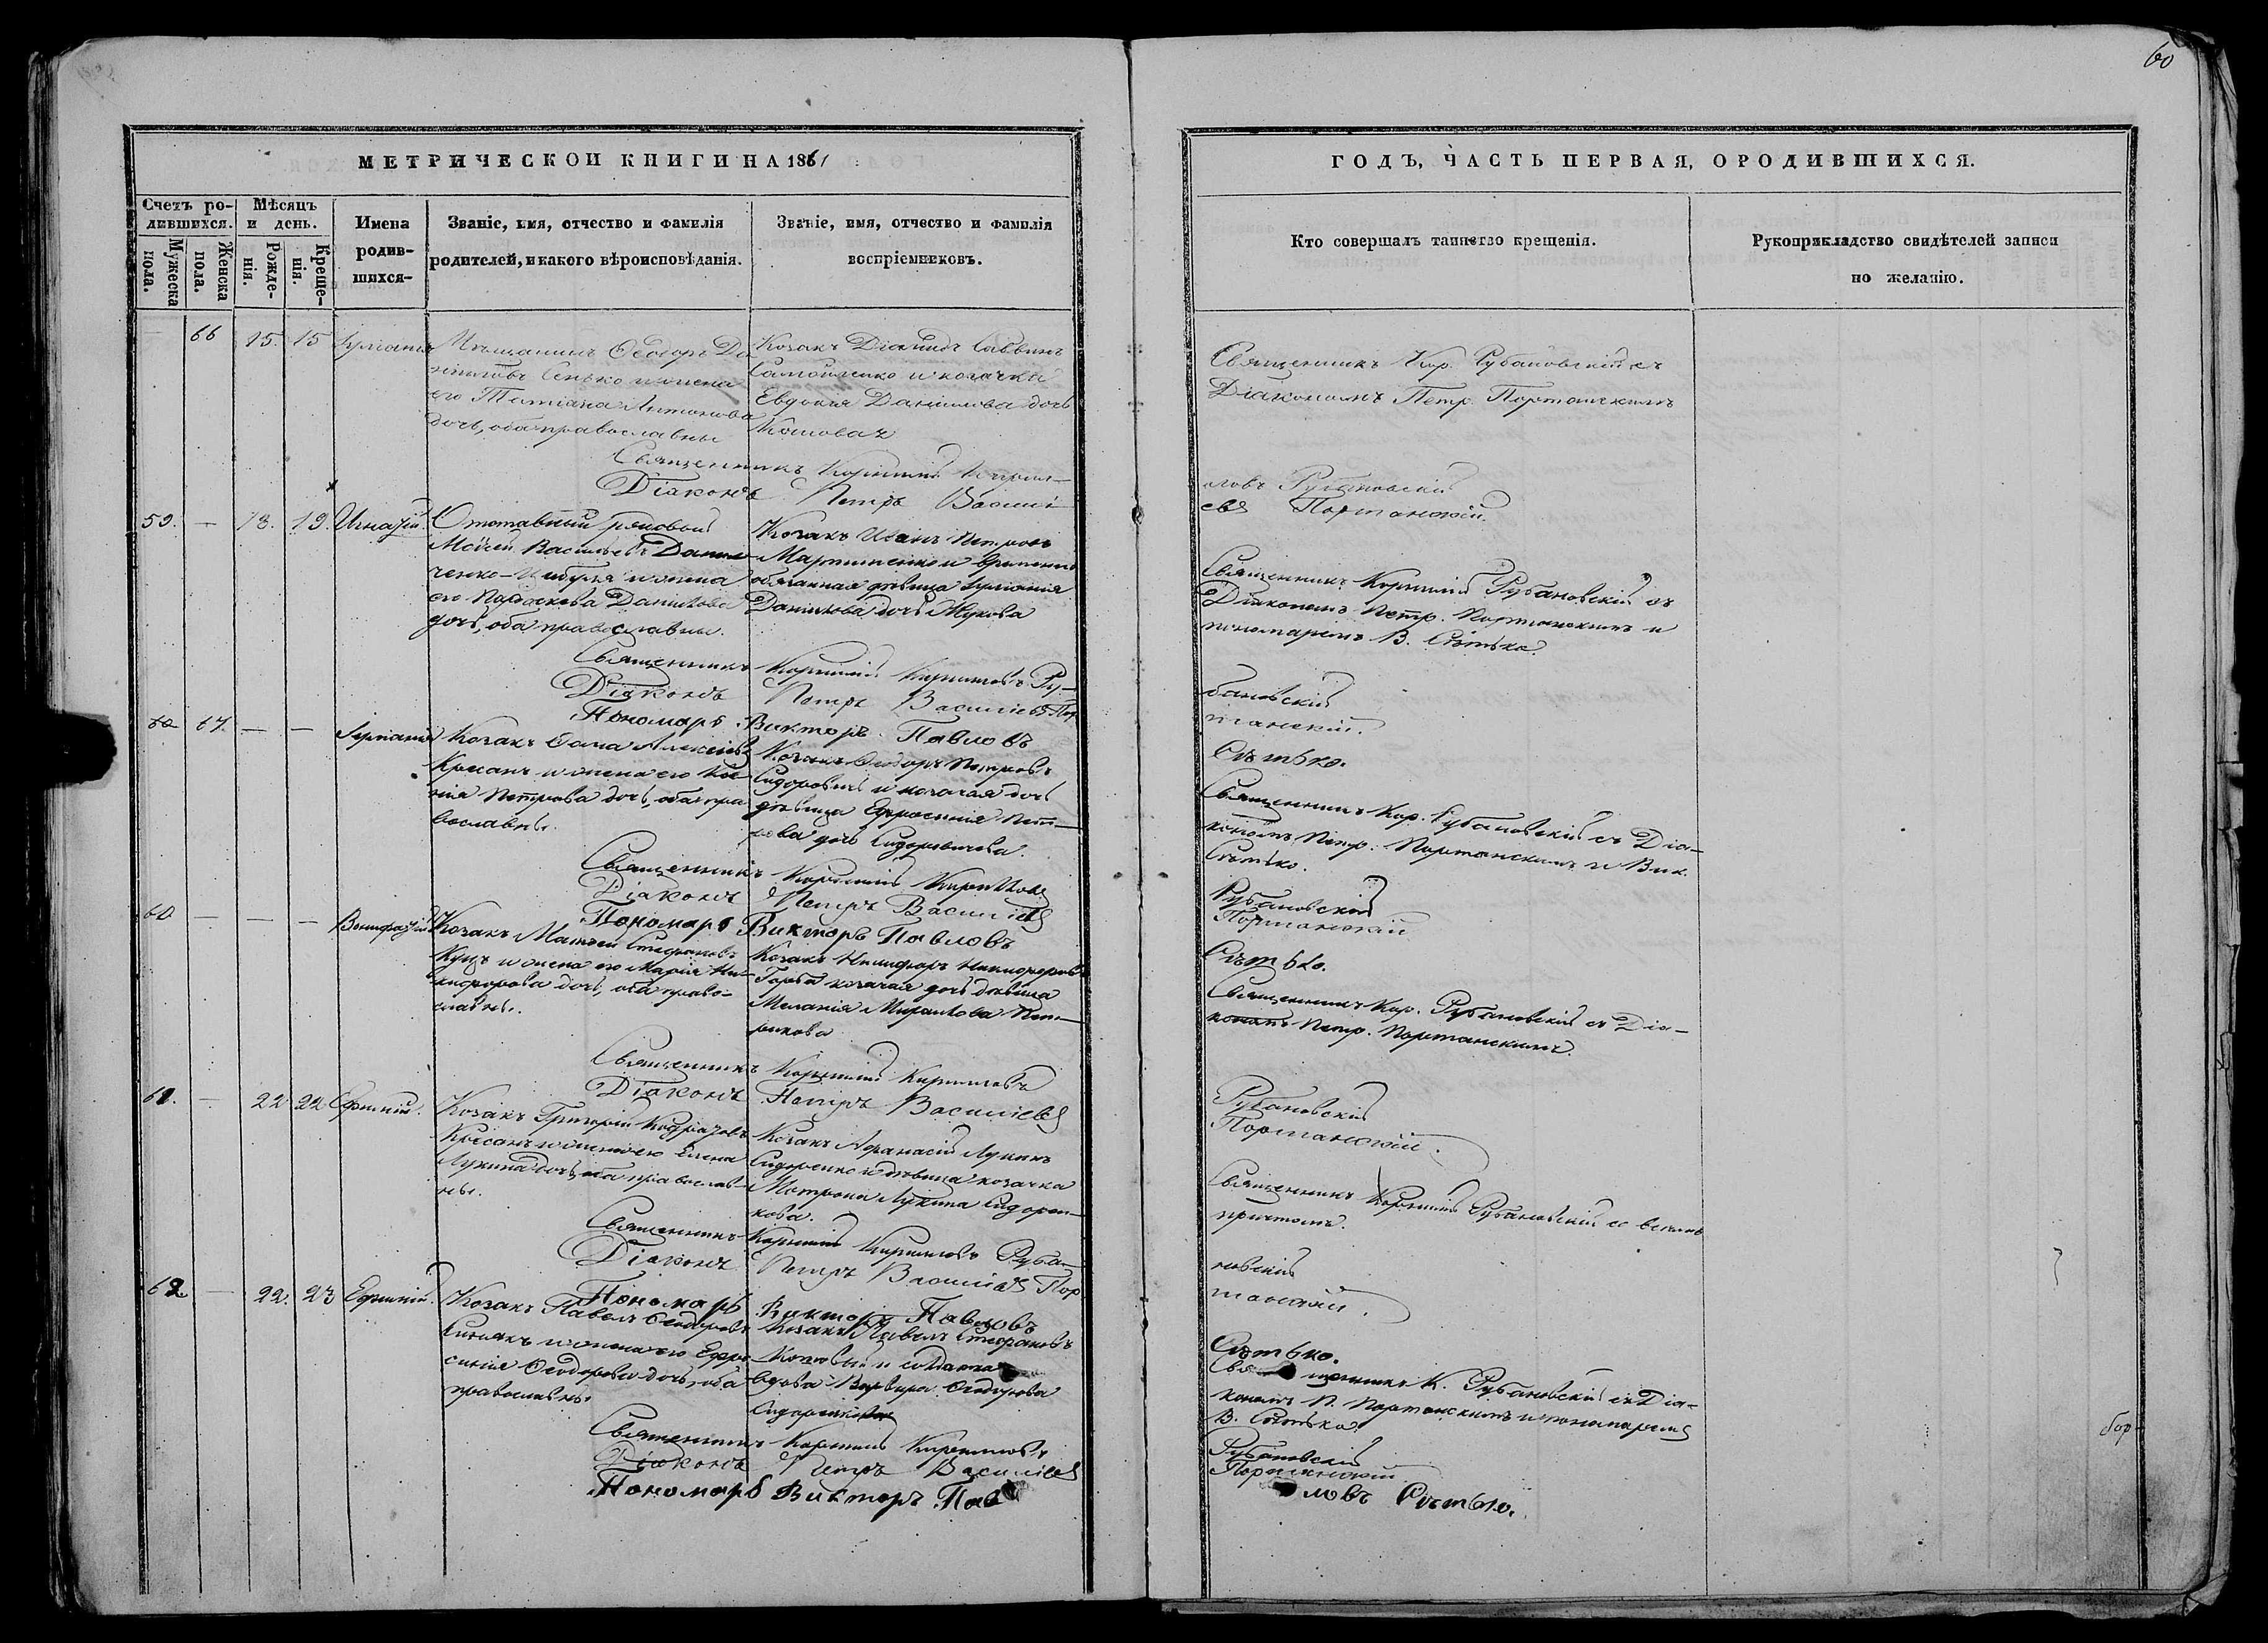 60
МЕТРИЧЕСКОИ КНИГИ НА 1861
ГОДЪ, ЧАСТЬ ПЕРВАЯ, О РОДИВШИХСЯ.
Счетъ ро-
дившихся.
Мужеска пола.
Женска пола.
Мѣсяцъ
и день.
Рожде-
нія.
Креще-
нія.
Имена
родив-
шихся-
Званіе, имя, отчество и фамилія
родителей, и какого вѣроисповѣданія.
Званіе, имя, отчество и фамилія
воспріемниковъ.
Кто совершалъ таинство крещенія.
Рукоприкладство свидѣтелей записи
по желанію.
66 15. 15
Мѣщанинъ Ѳеодоръ Да-
ніиловъ Сенько и жена
его Татіана Антонова
дочь, оба православны
Козакъ Діамидъ Саввинъ
Самойленко и козачка
Евдокія Даніилова дочь
Священникъ Кор. Рубановскій съ
Діакономъ Петр. Портанскимъ
Священникъ Корнилій Кирил-
ловъ Рубановскій
Діаконъ Петръ Василі-
евъ Портанскій.
59. — 18. 19. Игнатій.
Отставный рядовой
Моѵсей Васильевъ Данил-
ченко-Цибуля и жена
его Параскева Данилова
дочь, оба православны.
Козакъ Иванъ Петровъ
Мартиненко и временно
обязанная дѣвица Іуліанія
Данилова дочь Жукова
Священникъ Корнилій Рубановскій съ
Діакономъ Петр. Портанскимъ и
пономаремъ В. Сѣтько.
Священникъ Корнилій Кирилловъ Ру-
бановскій
Діаконъ Петръ Василіевъ Пор-
танскій.
Пономарь Викторъ Павловъ
Сѣтько.
67. — —
Козакъ Ѳома Алексіевъ
Кресанъ и жена его Ксе-
нія Петрова дочь, оба пра-
вославны.
Козакъ Ѳеодоръ Петровъ
Сидоровичъ и козачая дочь
дѣвица Ефросинія Пет-
рова дочь Сидоровичева.
Священникъ Кор. Рубановскій съ Діа-
кономъ Петр. Портанскимъ и Вик.
Сѣтько.
Священникъ Корнилій Кирилловъ
Рубановскій
Діаконъ Петръ Василіевъ
Портанскій
Пономарь Викторъ Павловъ
Сѣтько.
60 — — — Вонифатій
Козакъ Матѳей Стефановъ
Куцъ и жена его Марія Ни-
кифорова дочь, оба право-
славны.
Козакъ Никифоръ Никифоровъ
Горба козачая дочь дѣвица
Меланія Михайлова Пет-
рикова
Священникъ Кор. Рубановскій съ Діа-
кономъ Петр. Портанскимъ.
Священникъ Корнилій Кирилловъ
Рубановскій
Діаконъ Петръ Василіевъ
Портанскій.
61. — 22 22 Ефимій.
Козакъ Григорій Кодратовъ
Кресанъ и жена его Елена
Лукина дочь, оба православ-
ны.
Козакъ Аѳанасій Лукинъ
Сидоренко и дѣвица козачка
Матрона Лукина Сидорен-
кова.
Священникъ Корнилій Рубановскій со всѣмъ
причтомъ.
Священникъ Корнилій Кирилловъ Руба-
новскій
Діаконъ Петръ Василіевъ Пор-
танскій.
Пономарь Викторъ Павловъ
Сѣтько.
62. — 22. 23 Ефимій.
Козакъ Павелъ Ѳеодоровъ
и жена его Ефро-
синія Ѳеодорова дочь, оба
православны.
Козакъ Павелъ Стефановъ
и солдатка
вдова Варвара Ѳеодорова
Священникъ К. Рубановскій съ Діа-
кономъ П. Портанскимъ и пономаремъ
В. Сѣтько.
Священникъ Корнилій Кирилловъ
Рубановскій
Діаконъ Петръ Василіевъ
Портанскій
Пономарь Викторъ Пав
ловъ Сѣтько.